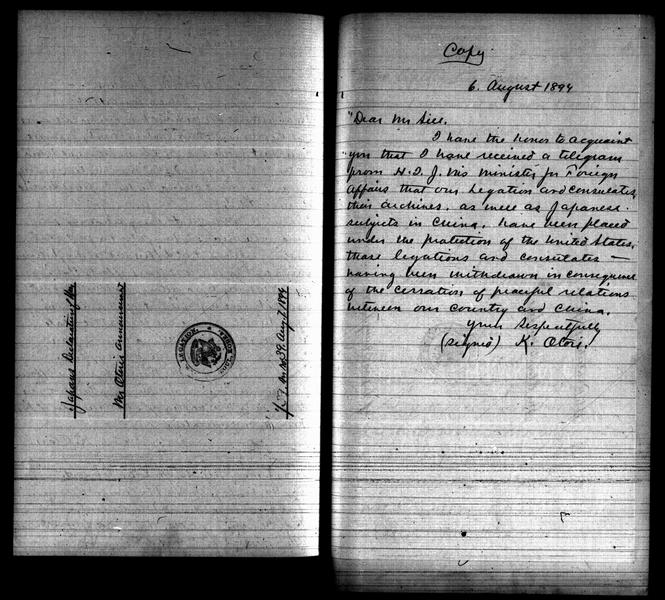 Japans declaration of War
Mr Otoris announcement
Copy
6. August 1894
"Dear Mr Sill.
I have the honor to acquaint
you that I have received a telegram
from H. I. J. M's Minister for Foreign
Affairs that our Legation and consulates,
their archives, as well as Japanese
subjects in China, have been placed
under the protection of the United States,
those legations and consulates —
having been withdrawn in consequence
of the cessation of peaceful relations
between our country and China.
Yours Respectfully
(signed) K. Otori.